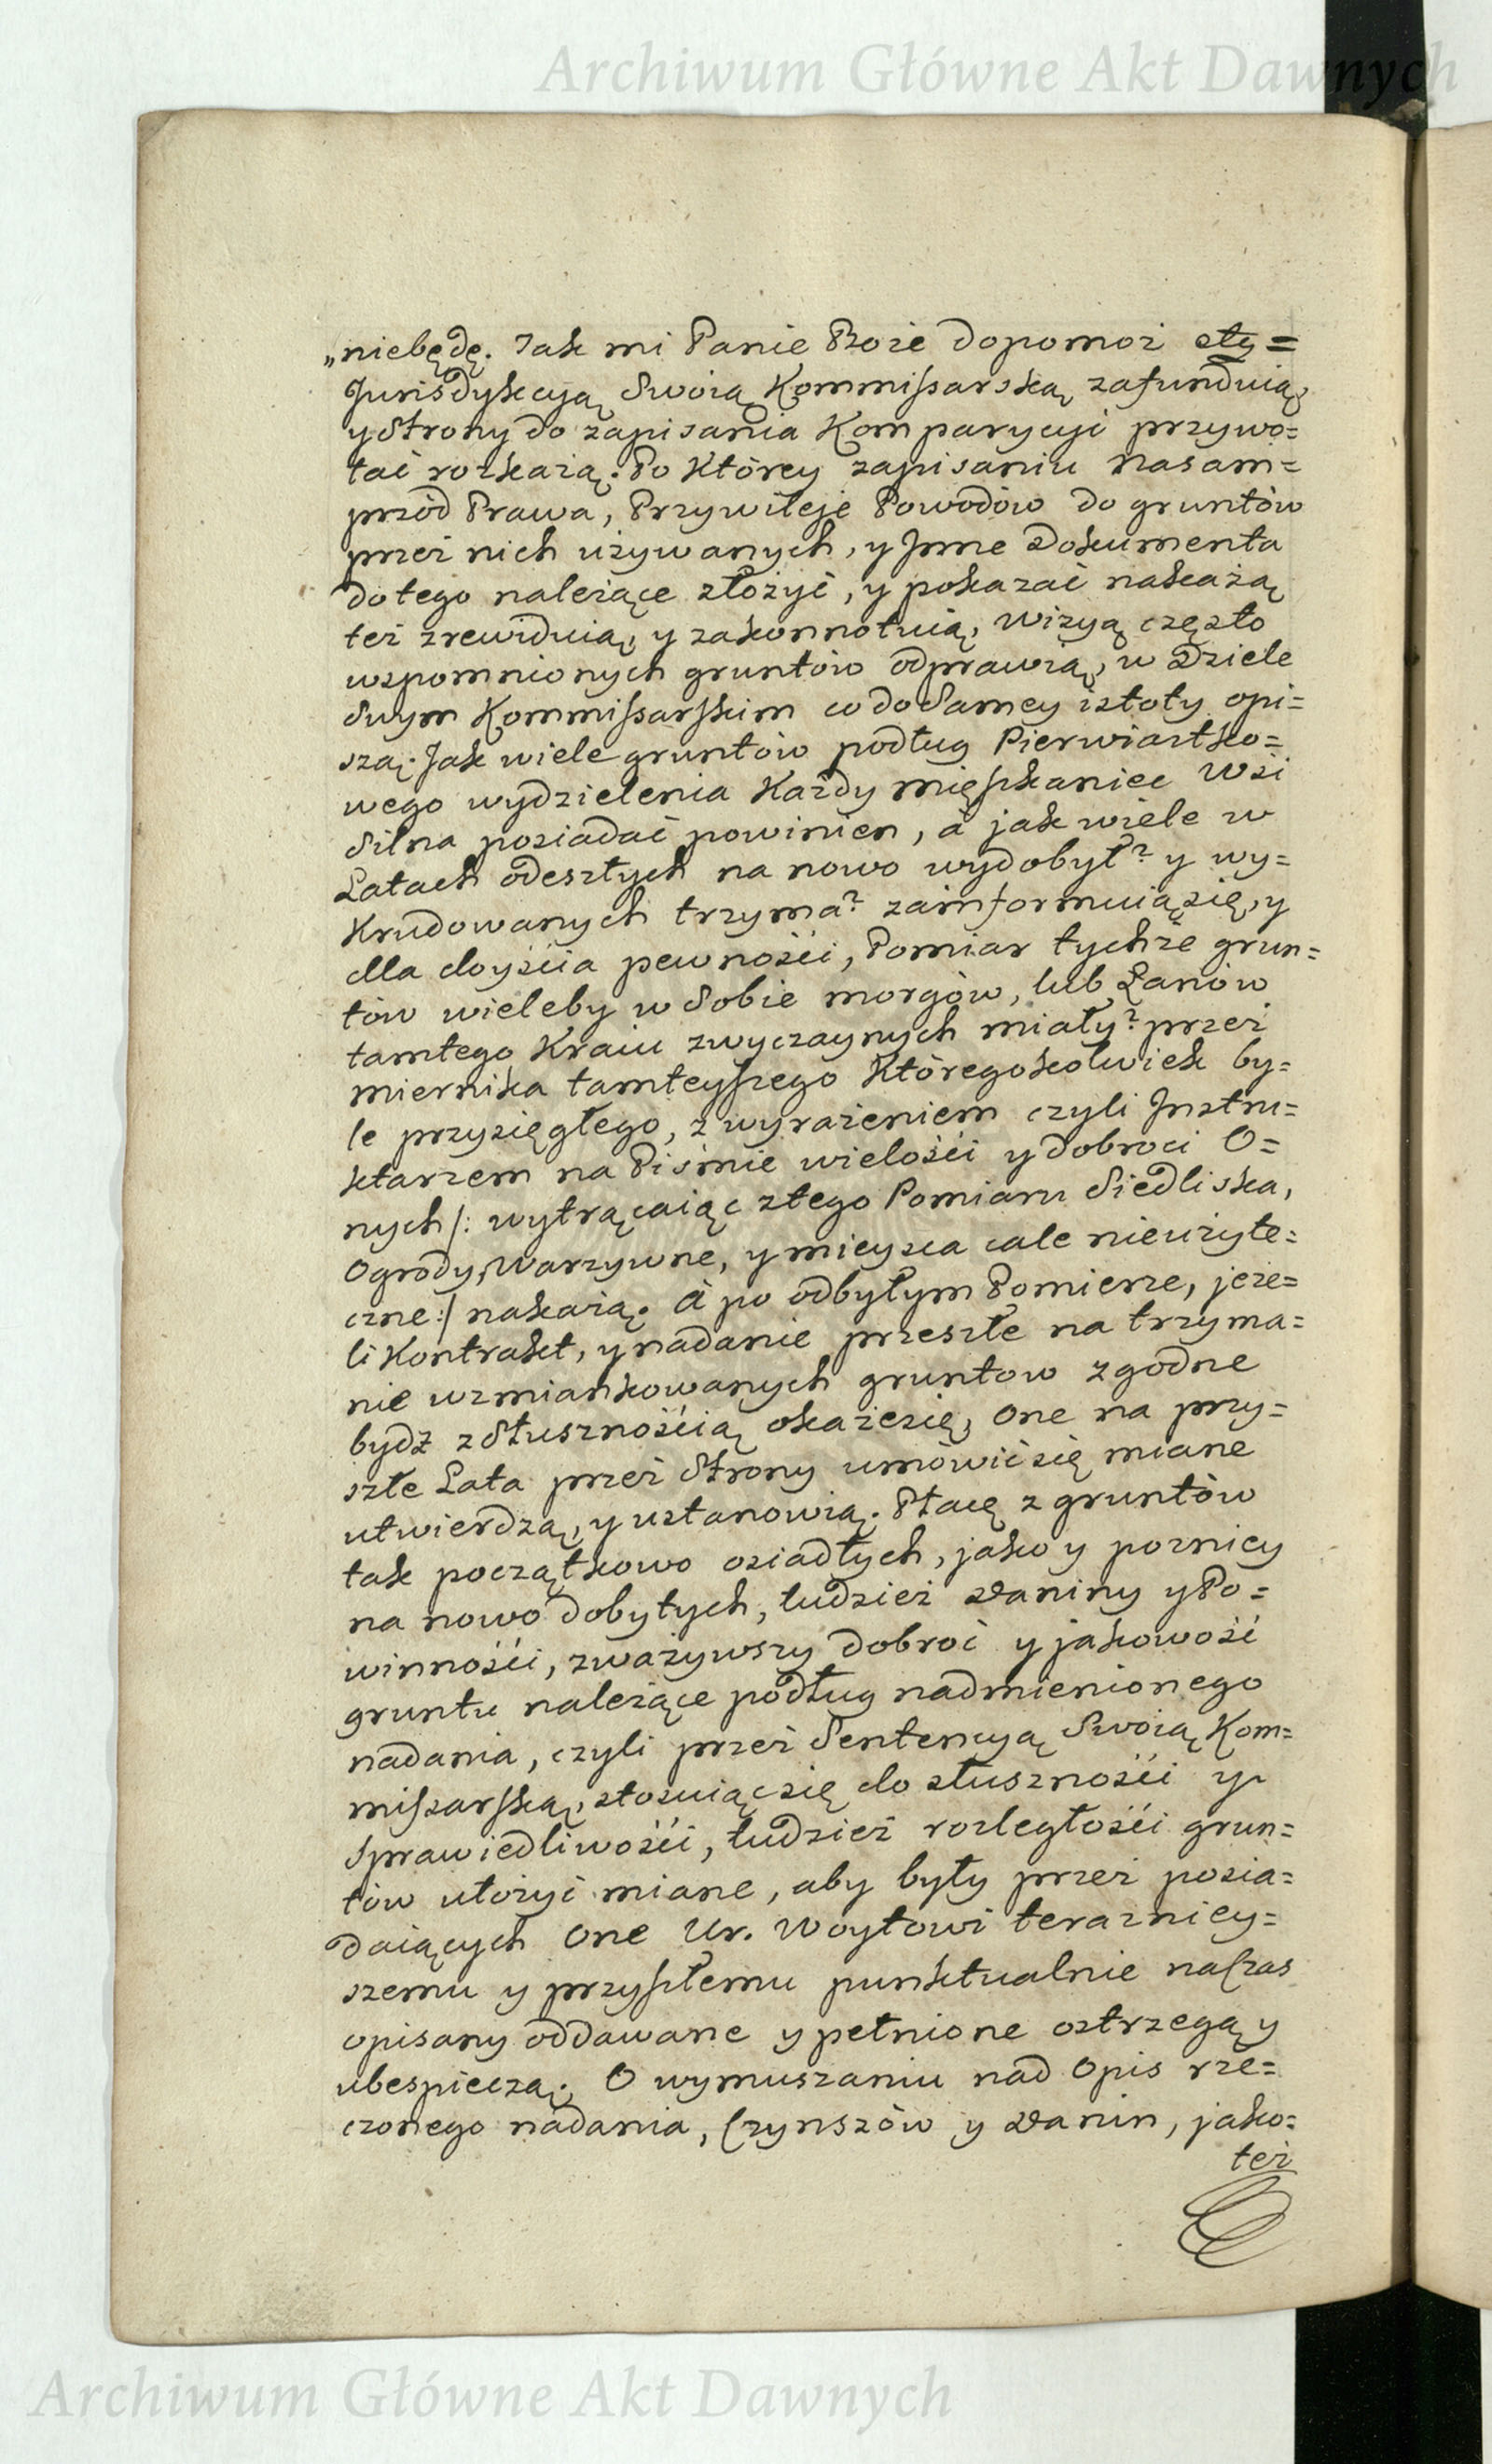 Archiwum Główne Akt Dawnych
„niebędę. Jak mi Panie Boże dopomoż etc=
Jurisdykcyją Swoią Kommissarską zafunduią,
y Strony do zapisania Komparycyi przywo=
łać rozkażą. Po Którey zapisaniu nasam=
przód Prawa, Przywileje Powodów do gruntów
przez nich używanych, y Jnne Dokumenta
do tego należące złożyć, y pokazać nakażą
też zrewiduią, y zakonnotuią, Wizyą często
wspomnionych gruntów odprawią, w Dziele
Swym Kommissarskim co do Samey istoty opi=
szą. Jak wiele gruntów podług Pierwiastko=
wego wydzielenia Każdy mięszkaniec Wsi
Silna posiadać powinien, á jak wiele w
Latach odeszłych na nowo wydobył? y wy=
Krudowanych trzyma? zainformuią się, y
dla doyścia pewnośći, Pomiar tychże grun=
tów wieleby w Sobie morgów, lub Łanów
tamtego Kraiu zwyczaynych miały? przez
miernika tamteyszego Któregokolwiek by=
le przysięgłego, z wyrażeniem czyli Jnstru=
ktarzem na Piśmie wielośći y dobroci O=
nych /: wytrącaiąc z tego Pomiaru Siedliska,
Ogrody, Warzywne, y mieysca cale nieużyte=
czne :/ nakażą. á po odbytym Pomierze, jeże=
li Kontrakt, y nadanie przeszłe na trzyma=
nie wzmiankowanych gruntow zgodne
bydź z Słusznośćią okaże się, one na przy=
szłe Lata przez Strony umówić się miane
utwierdzą, y ustanowią. Płacę z gruntów
tak początkowo osiadłych, jako y pozniey
na nowo dobytych, tudzież Daniny y Po=
winnośći, zważywszy dobroć y jakowość
gruntu należące podług nadmienionego
nadania, czyli przez Sentencyą Swoią Kom=
missarską, stosuiąc się do słusznośći y
Sprawiedliwośći, tudzież rozległośći grun=
tów ułożyć miane, aby były przez posia=
daiących One Ur. Woytowi terazniey=
szemu y przyszłemu punktualnie na Czas
opisany oddawane y pełnione ostrzegą y
ubespieczą. O wymuszaniu nad Opis rze=
czonego nadania, Czynszów y Danin, jako=
też
Archiwum Główne Akt Dawnych